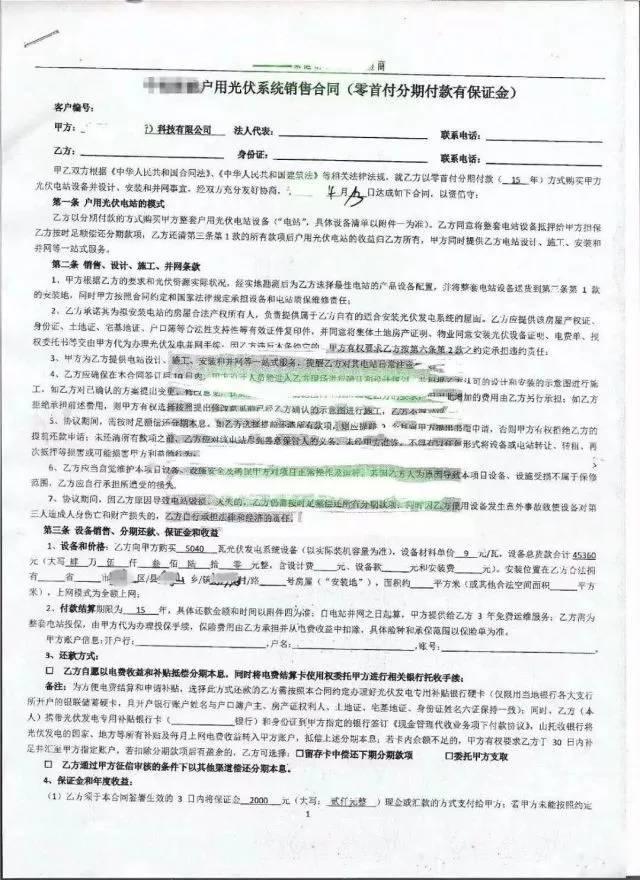 户用光伏系统销售合同（零首付分期付款有保证金）
客户编号：
甲方： 科技有限公司 法人代表： 联系电话：
乙方： 身份证： 联系电话：
甲乙双方根据《中华人民共和国合同法》、《中华人民共和国建筑法》等相关法律法规，就乙方以零首付分期付款（ 15 年）方式购买甲方
光伏电站设备并设计、安装和并网事宜，经双方充分友好协商， 年 月 日达成如下合同，以资信守：
第一条 户用光伏电站的模式
乙方以分期付款的方式购买甲方整套户用光伏电站设备（“电站”，具体设备清单以附件一为准）。乙方同意将整套电站设备抵押给甲方担保
乙方按时足额偿还分期款项；乙方还清第三条第1款的所有款项后户用光伏电站的收益归乙方所有，甲方同时提供乙方电站设计、施工、安装和
并网等一站式服务。
第二条 销售、设计、施工、并网条款
1、甲方根据乙方的要求和光伏资源实际状况，经实地勘察后为乙方选择最佳电站的产品设备配置，并将整套电站设备送货到第三条第1款
的安装地，同时甲方按照合同约定和国家法律规定承担设备和电站质保维修责任；
2、乙方承诺其为拟安装电站的房屋合法产权所有人，负责提供属于乙方自有的适合安装光伏发电系统的屋面。乙方应提供该房屋产权证、
身份证、土地证、宅基地证、户口簿等合法性支持性等有效证件复印件，并同意将集体土地房产证明、物业同意安装光伏设备证明、电费单、授
权委托书等交由甲方代为办理光伏发电并网手续，因乙方违反本条约定的，甲方有权要求乙方按第六条第2款之约定承担违约责任；
3、甲方为乙方提供电站设计、施工、安装和并网等一站式服务，提醒乙方对其电站日常注意
4、乙方应确保在本合同签订后10日内，
工，如乙方对已确认的方案提出变更， 此增加的费用由乙方另行承担，如乙方
拒绝承担前述费用，则甲方有权选择按照
5、协议期间，需按时足额偿还分期本息， 申请，否则甲方有权拒绝乙方的
提前还款申请；未还清所有款项之前， 形式将设备或电站转让、转租、再
次抵押等损害或可能损害甲方利益的行为。
6、乙方应当自觉维护本项目设备、设施安全及确保甲方对项目正常操作及运行，若因乙方人为原因导致本项目设备、设施受损不属于保修
范围，乙方应自行承担所遭受的损失。
7、协议期间，因乙方原因导致电站毁损、灭失的，乙方仍需按时足额偿还所有分期款项，同时因乙方使用设备发生意外事故致使设备对第
三人造成人身伤亡和财产损失的，乙方自行承担法律和经济的责任。
第三条 设备销售、分期还款、保证金约定
1、设备和价格：乙方向甲方购买 5040 瓦光伏发电系统设备（以实际装机容量为准），设备材料单价 9 元/瓦，设备总货款合计 45360
元（大写 肆 万 伍 仟 叁 佰 陆 拾 零 元整，含设计费 元、设备款 元和安装费 元）。安装位置在乙方合法拥
有 省 市 区/县 乡/镇 村/路 号房屋（“安装地”），面积约 平方米（或其他合法空间面积 平方
米），上网模式为全额上网；
2、付款结算期限为 15 年，具体还款金额和时间以附件四为准；自电站并网之日起算，甲方提供给乙方 3 年免费运维服务；乙方需为
整套电站投保，由甲方代为办理投保手续，保险费用由乙方承担并从电费收益中扣除，具体险种和承保范围以保险单为准。
甲方账户信息：开户行： ，户名： ，账号： 。
3、还款方式：
□ 乙方自愿以电费收益和补贴抵偿分期本息，同时将电费结算卡使用权委托甲方进行相关银行托收手续；
备注：为方便电费结算和申请补贴，选择此方式还款的乙方需按照本合同约定办理好光伏发电专用补贴银行硬卡（仅限用当地银行各大支行
所开户的银联储蓄硬卡，且开户银行账户姓名与户口簿户主、房产证权利人、土地证、宅基地证、身份证姓名六证保持一致）；同时，乙方（本
人）携带光伏发电专用补贴银行卡（ 银行）和身份证到甲方指定的银行签订《现金管理代收业务项下付款协议》，由托收银行将
光伏发电的国家、地方等所有补贴及每月上网电费收益转入甲方账户，抵偿上述分期本息；若卡内余额不足的，甲方有权要求乙方于 30 日内补
足并汇至甲方指定账户，若扣除分期款项后有盈余的，乙方可选择：□留存卡中偿还下期分期款项 □委托甲方支取
□ 乙方通过甲方征信审核的条件下以其他渠道偿还分期本息。
4、保证金和年度收益：
（1）乙方须于本合同签署生效的 3 日内将保证金 2000 元（大写： 贰仟元整 ）现金或汇款的方式支付给甲方；若甲方未能按照约定
1